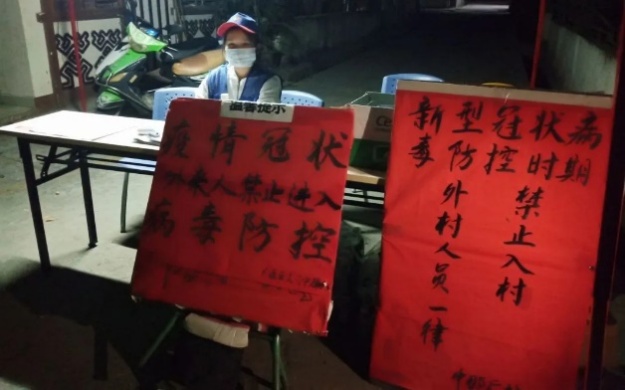 温馨提示
疫情冠状
外来人禁止进入
病毒防控
新型冠状病
毒防控时期
外村人员一律
禁止入村